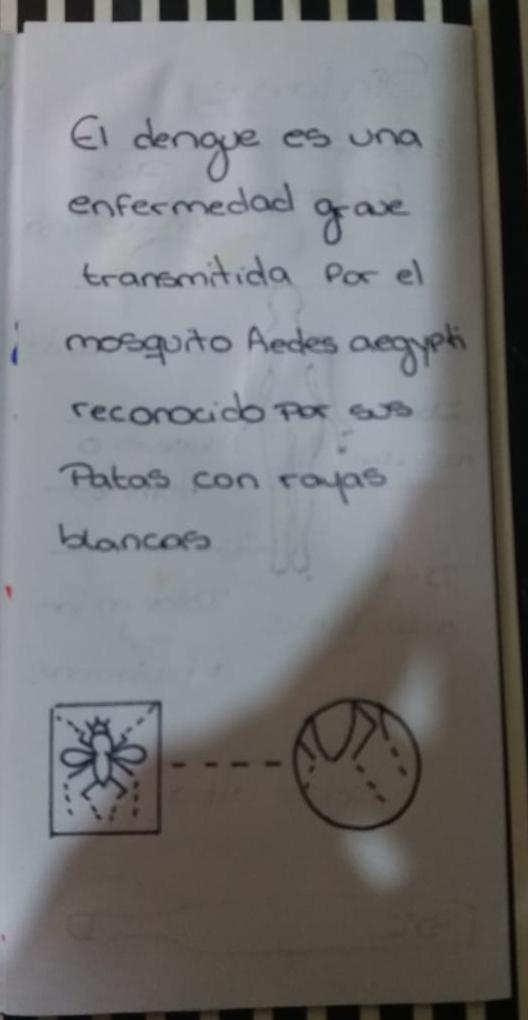 El dengue es una
enfermedad grave
transmitida Por el
mosquito Aedes aegypti
reconocido Por sus
Patas con rayas
blancas